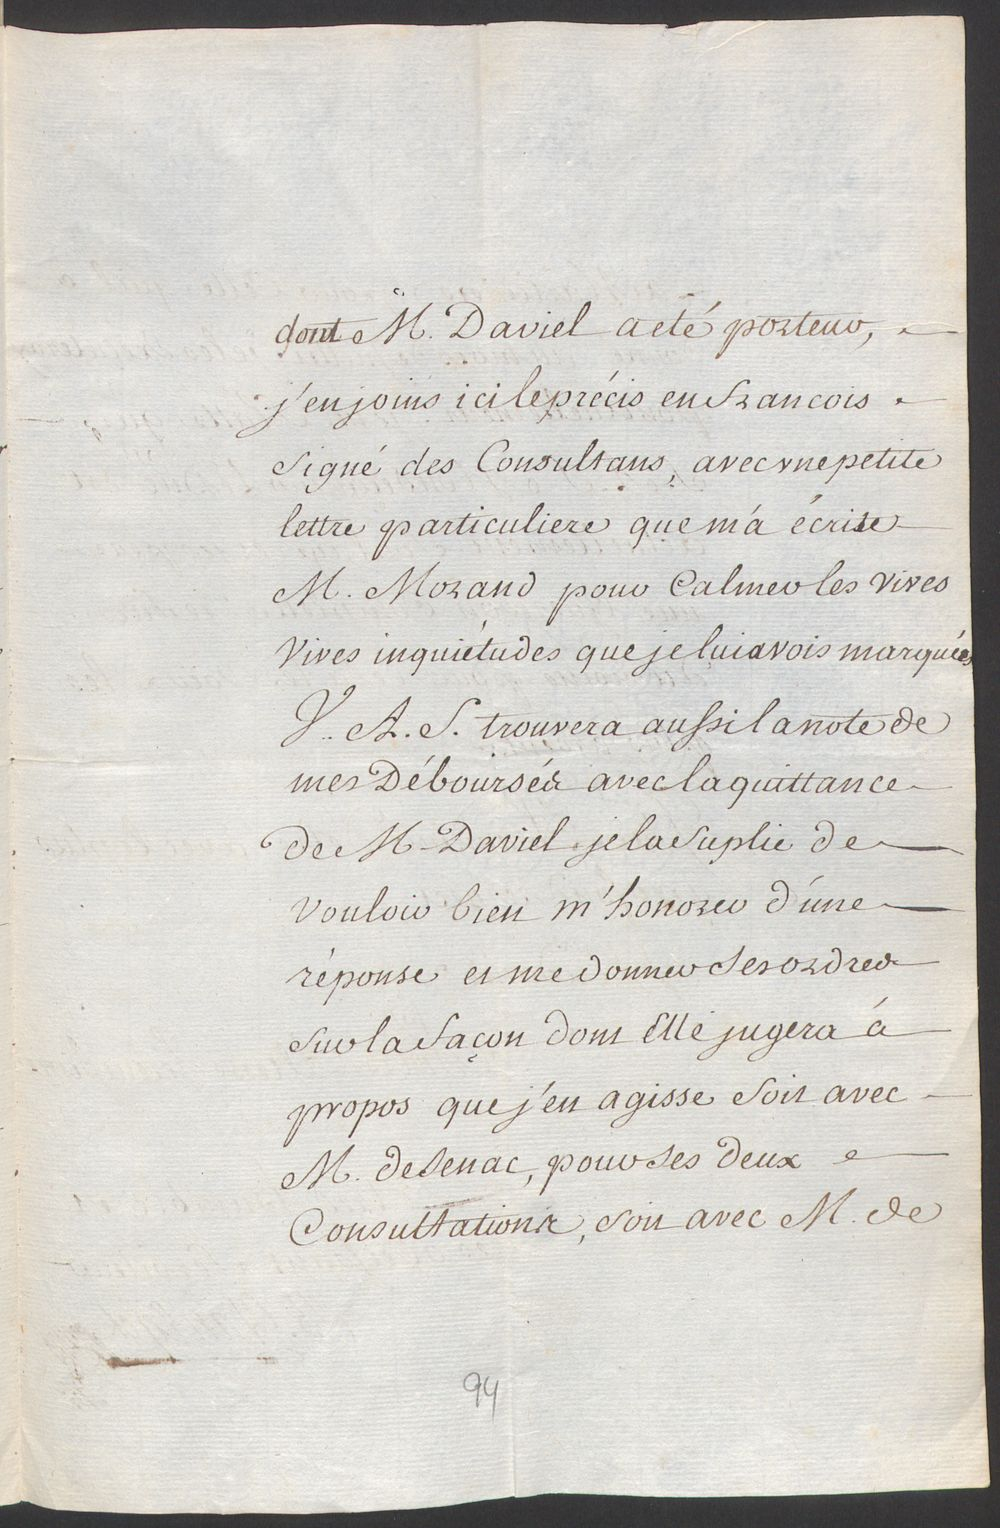 dont M. Daviel a eté porteur,
j'en joins ici le précis en francois
signé des Consultans, avec vne petite
lettre particuliere que m'a écrite
M. Morand pour Calmer les vives
vives inquiétudes que je lui avois marquées
V. A. S. trouvera aussi la note de
mes Déboursés avec la quittance
de M. Daviel je la suplie de
vouloir bien m'honorer d'une
réponse et me donner ses ordres
sur la façon dont Elle jugera à
propos que j'en agisse soit avec
M. de Senac, pour ses deux
Consultations, soit avec M. de
94